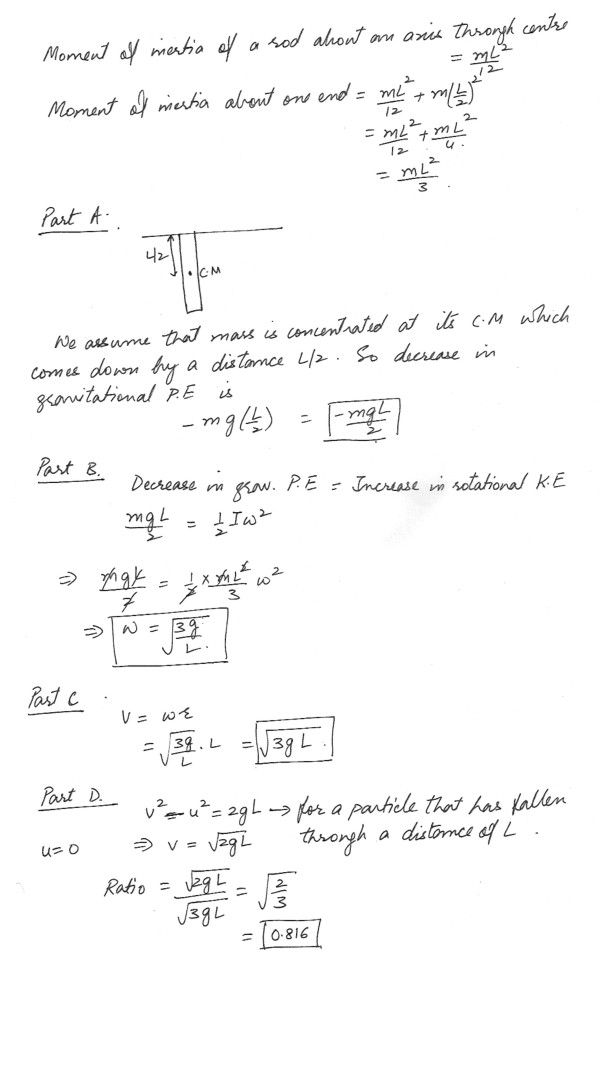 Moment of inertia of a rod about an axis through centre
= mL²/12
Moment of inertia about one end = mL²/12 + m(L/2)²
= mL²/12 + mL²/4.
= mL²/3.
Part A.
L/2
C.M
We assume that mass is concentrated at its C.M which
comes down by a distance L/2. So decrease in
gravitational P.E is
- mg(L/2) = -mgL/2
Part B.
Decrease in grav. P.E = Increase in rotational K.E
mgL/2 = 1/2 Iω²
⇒ mgL/2 = 1/2 × mL²/3 ω²
⇒ ω = √(3g/L.)
Part C.
V = ωr
= √(3g/L) . L = √(3gL).
Part D.
v² - u² = 2gL → for a particle that has fallen
u=0 ⇒ v = √(2gL) through a distance of L.
Ratio = √(2gL)/√(3gL) = √(2/3)
= 0.816